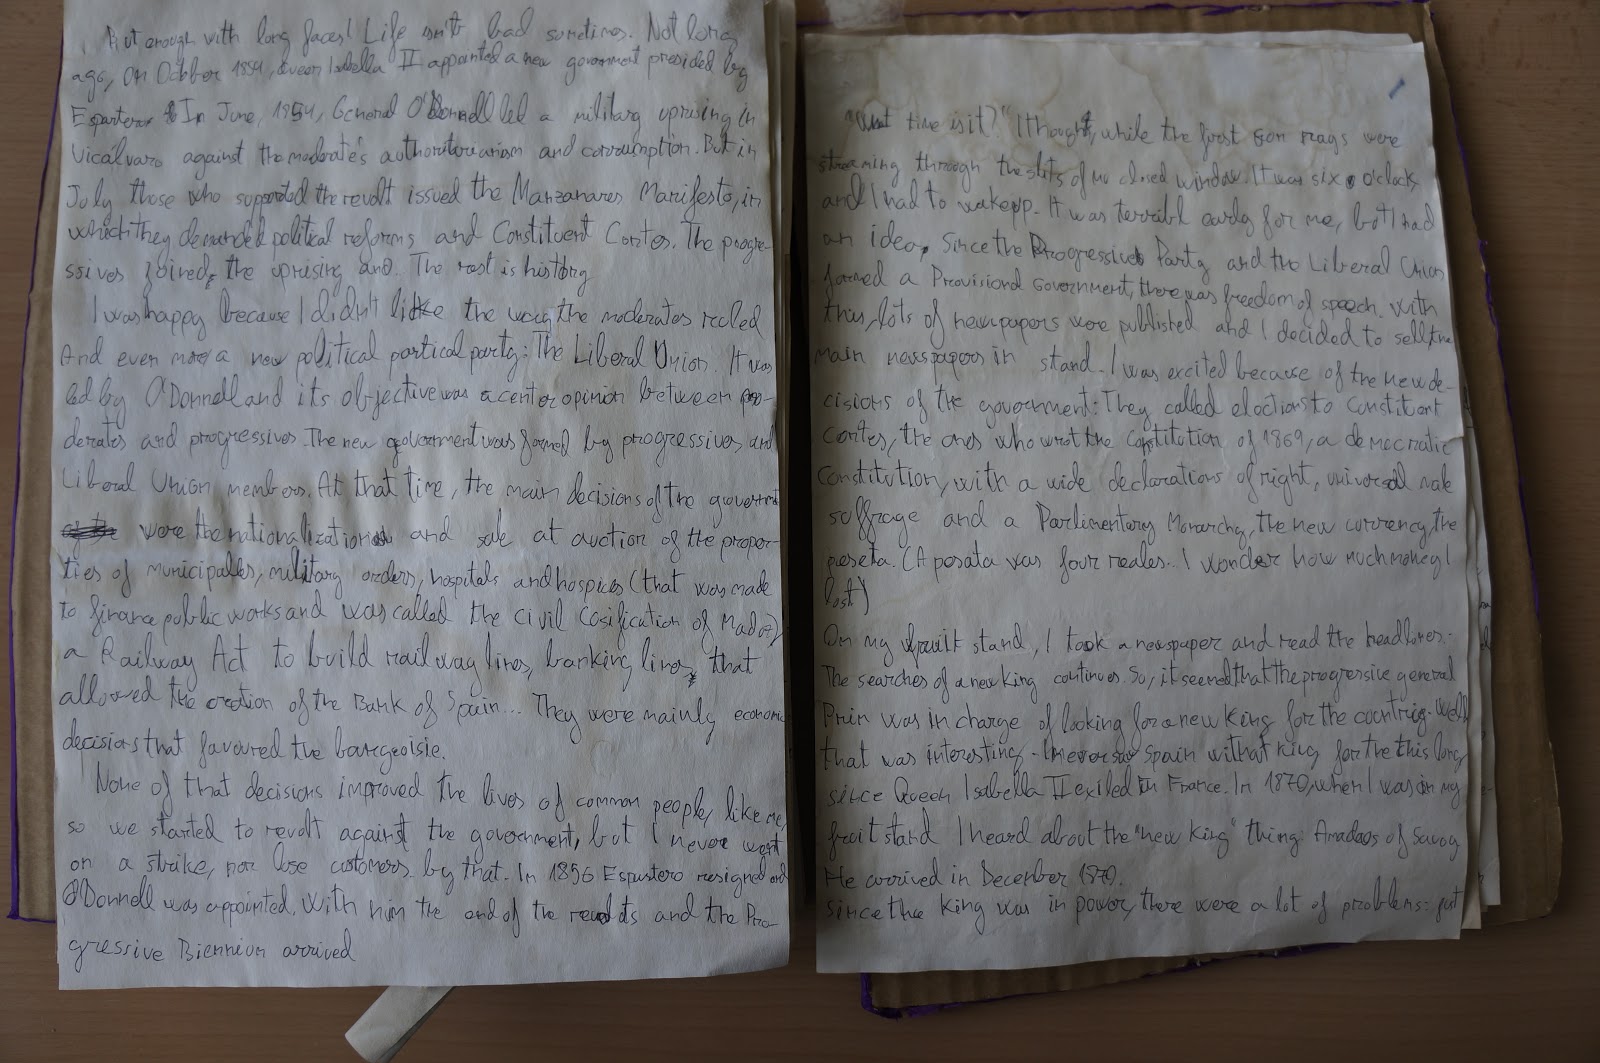 But enough with long faces! Life isn't bad sometimes. Not long
ago, on October 1854, Queen Isabella II appointed a new government presided by
Espartero. In June, 1954, General O'Donnell led a military uprising in
Vicálvaro against the moderate's authoritarianism and corrumption. But in
July those who supported the revolt issued the Manzanares Manifesto, in
which they demanded political reforms and Constituent Cortes. The progre-
ssives joined the uprising and. The rest is history
I was happy because I didn't like the way the moderates rooled
And even more, a new political partical party: The Liberal Union. It was
led by O'Donnell and its objective was a center opinion between mo-
derates and progressives. The new government was formed by progressives and
Liberal Union members. At that time, the main decisions of the government
were the nationalization and sale at auction of the proper-
ties of municipalles, military orders, hospitals and hospices (that was made
to finance public works and was called the Civil Cosification of Madoz)
a Railway Act to build railway lines, banking lines, that
allowed the creation of the Bank of Spain... They were mainly economic
decisions that favoured the bourgeoisie.
None of that decisions improved the lives of common people, like me,
so we started to revolt against the government, but I never went
on a strike, nor lose customers by that. In 1856 Espartero resigned and
O'Donnell was appointed. With him the end of the revolts and the Pro-
gressive Biennium arrived
"What time is it?" I thought, while the first son rags were
streaming through the slits of my closed window. It was six o'clock
and I had to wake up. It was terribl early for me, but I had
an idea. Since the Progressive Party and the Liberal Union
formed a Provisional Government, there was freedom of speech. With
this, lots of newspapers were published and I decided to sell the
main newspapers in stand. I was excited because of the new de-
cisions of the government: They called elections to Constituent
Cortes, the ones who wrot the Constitution of 1869, a democratic
Constitution, with a wide declarations of right, universal male
suffrage and a Parlimentary Monarchy, the new currency, the
peseta. (A peseta was four reales... I wonder how much money I
lost)
On my fruit stand, I took a newspaper and read the headlines:
The searches of a new King continues. So, it seemed that the progressive general
Prim was in charge of looking for a new King for the country. Well
that was interesting. I never saw Spain without King for the this long
since Queen Isabella II exiled in France. In 1870, when I was in my
fruit stand I heard about the "new King" thing: Amadeos of Savoy
He arrived in December 1870.
Since the King was in power, there were a lot of problems: first